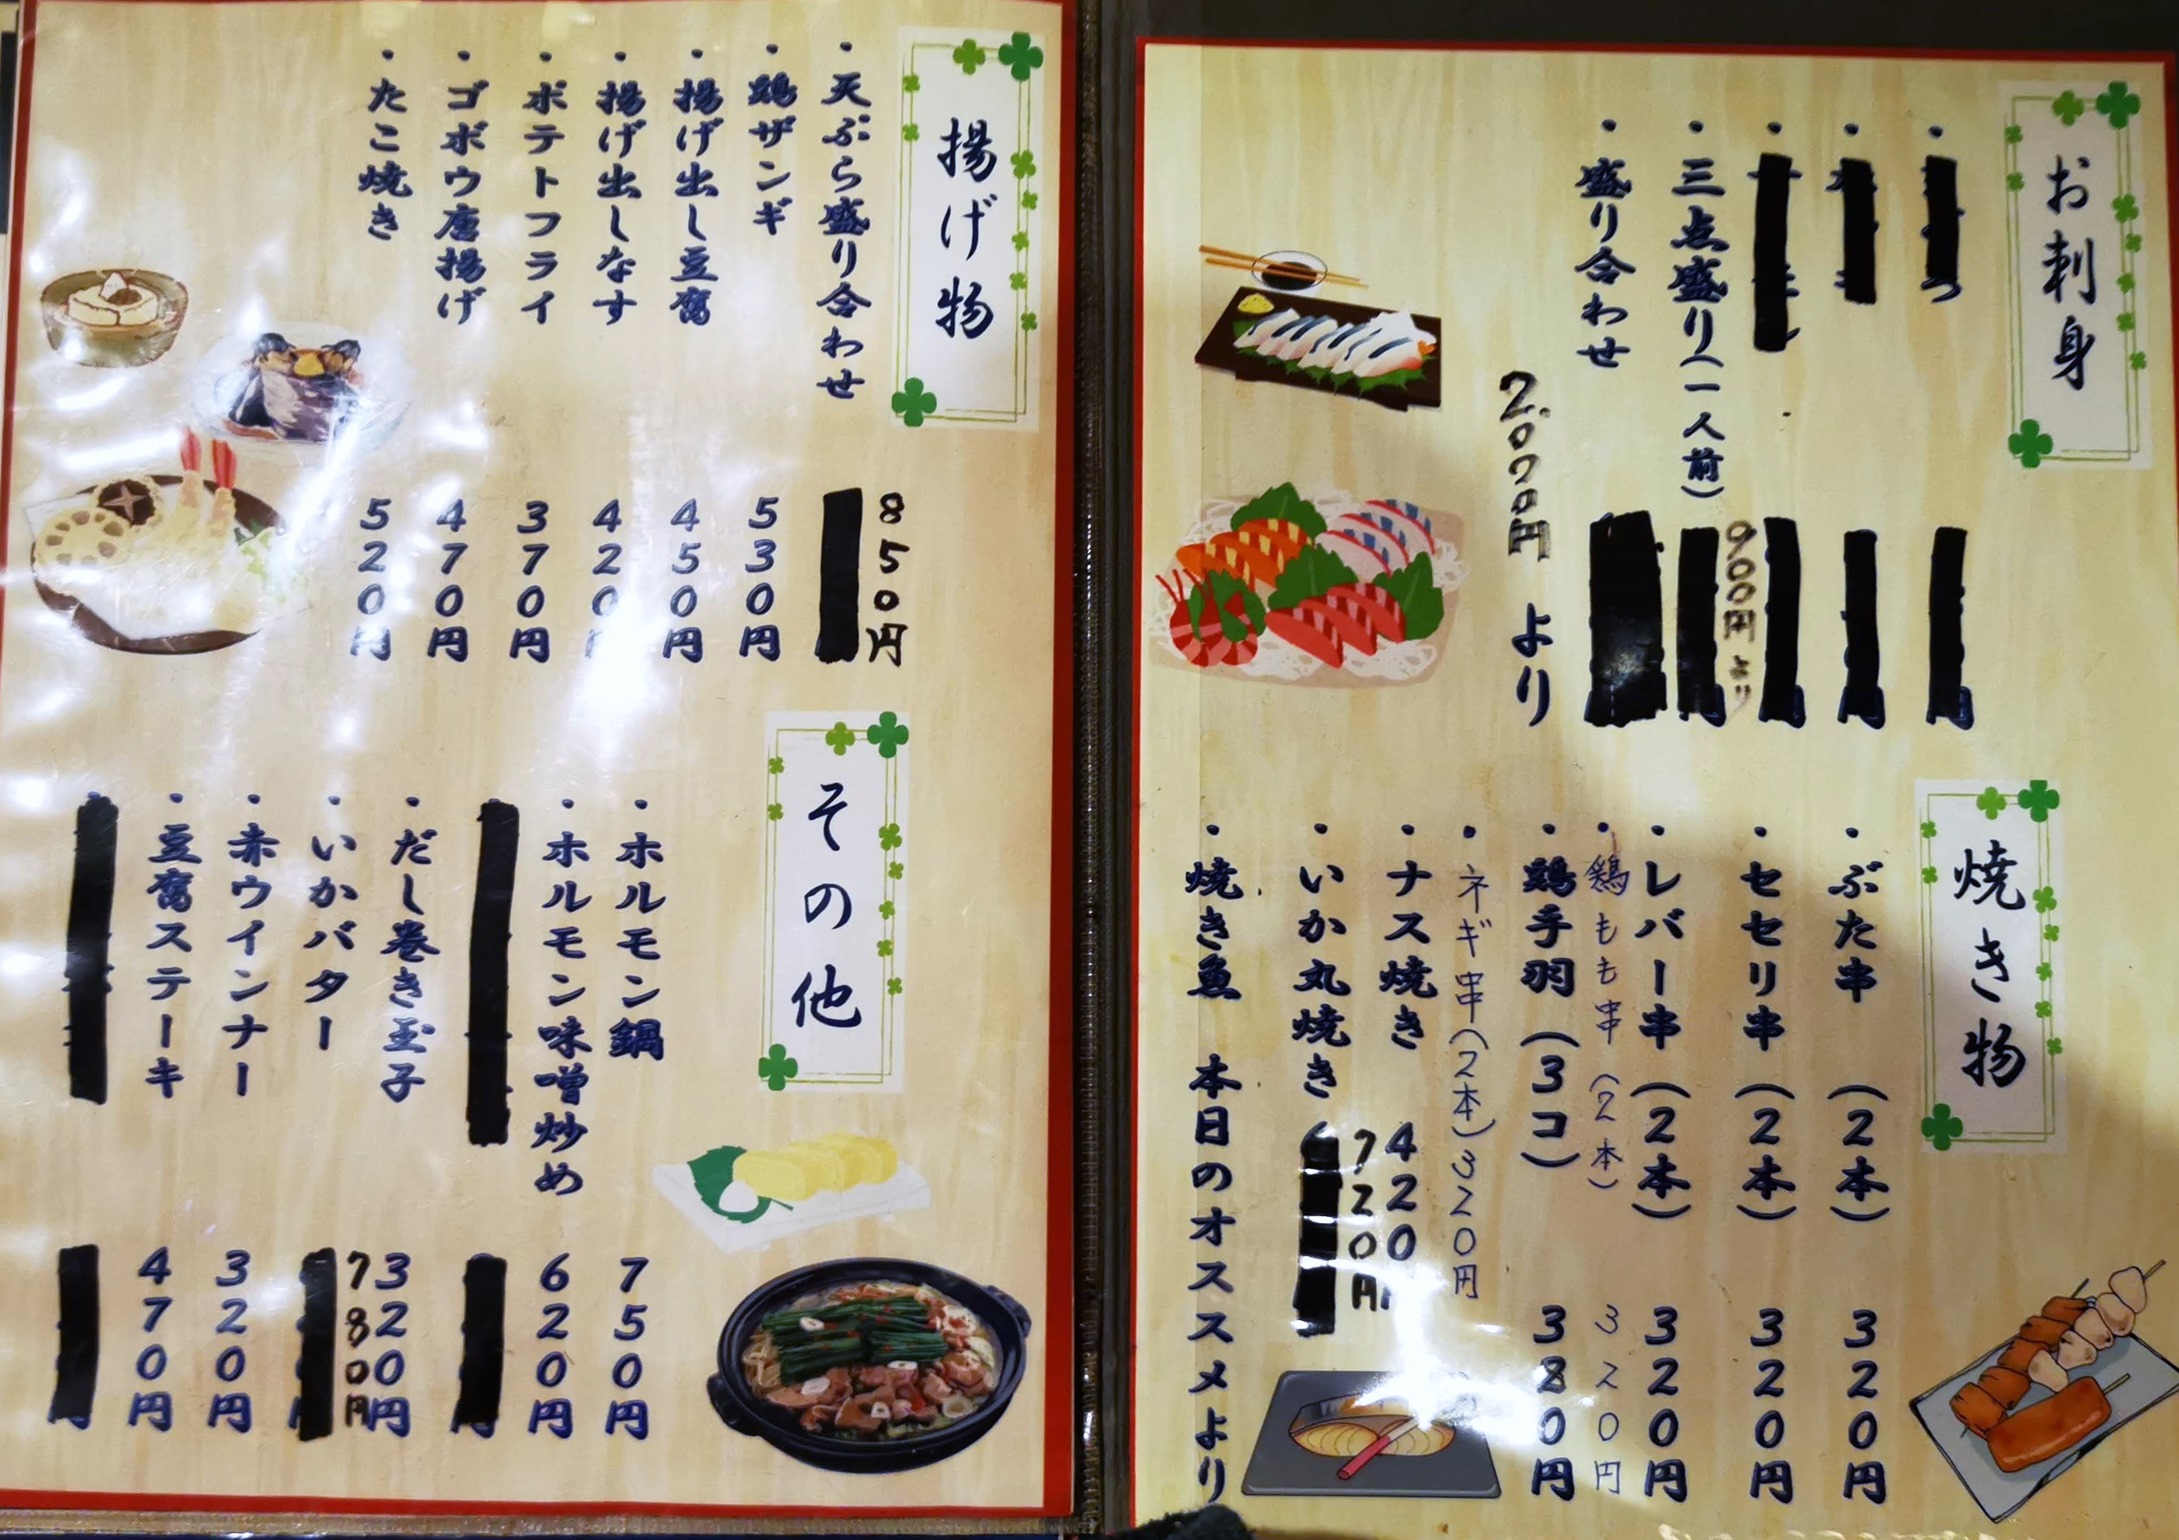 お刺身
・三点盛り(一人前)
900円より
・盛り合わせ
2,000円 より
焼き物
・ぶた串 (2本) 320円
・セセリ串 (2本) 320円
・レバー串 (2本) 320円
・鶏もも串 (2本) 320円
・鶏手羽 (3コ) 380円
・ネギ串(2本) 320円
・ナス焼き 420円
・いか丸焼き 720円
・焼き魚 本日のオススメより
揚げ物
・天ぷら盛り合わせ 850円
・鶏ザンギ 530円
・揚げ出し豆腐 450円
・揚げ出しなす 420円
・ポテトフライ 370円
・ゴボウ唐揚げ 470円
・たこ焼き 520円
その他
・ホルモン鍋 750円
・ホルモン味噌炒め 620円
・だし巻き玉子 320円
・いかバター 780円
・赤ウインナー 320円
・豆腐ステーキ 470円